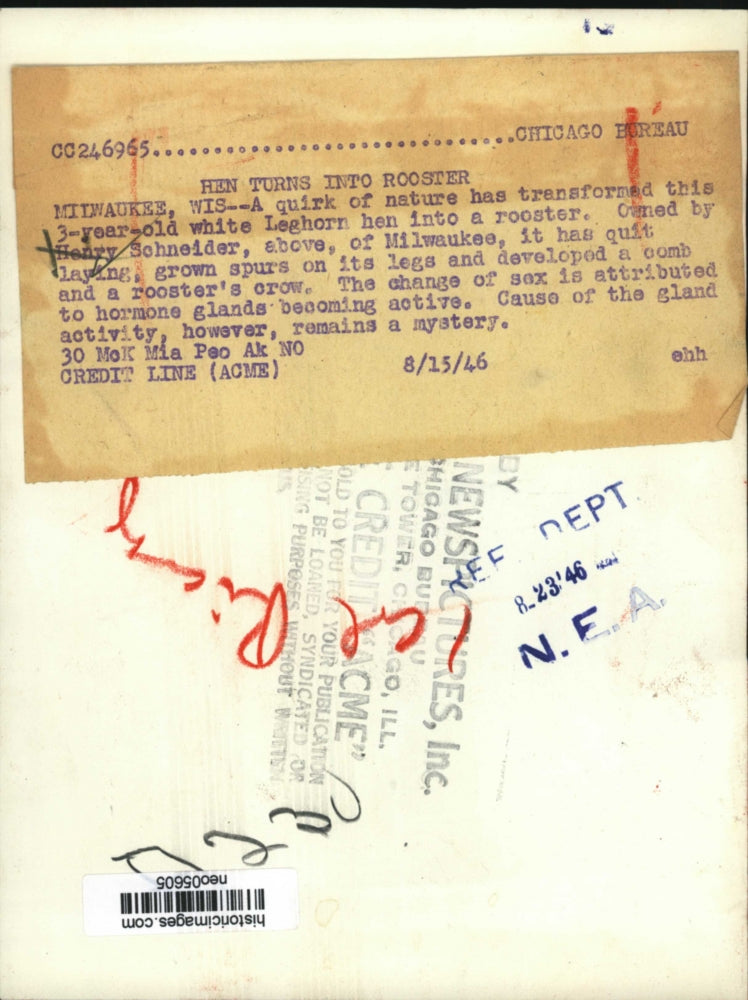 CC246965.................................CHICAGO BUREAU
HEN TURNS INTO ROOSTER
MILWAUKEE, WIS--A quirk of nature has transformed this
3-year-old white Leghorn hen into a rooster. Owned by
Henry Schneider, above, of Milwaukee, it has quit
laying, grown spurs on its legs and developed a comb
and a rooster's crow. The change of sex is attributed
to hormone glands becoming active. Cause of the gland
activity, however, remains a mystery.
30 McK Mia Peo Ak NO 8/15/46 ehh
CREDIT LINE (ACME)
BY
NEWSPICTURES, Inc.
CHICAGO BUREAU
TOWER, CHICAGO, ILL.
CREDIT "ACME"
OLD TO YOU FOR YOUR PUBLICATION
NOT BE LOANED, SYNDICATED OR
SING PURPOSES WITHOUT WRITTEN
REF DEPT.
8-23'46
N. E. A.
historicimages.com
neo05605